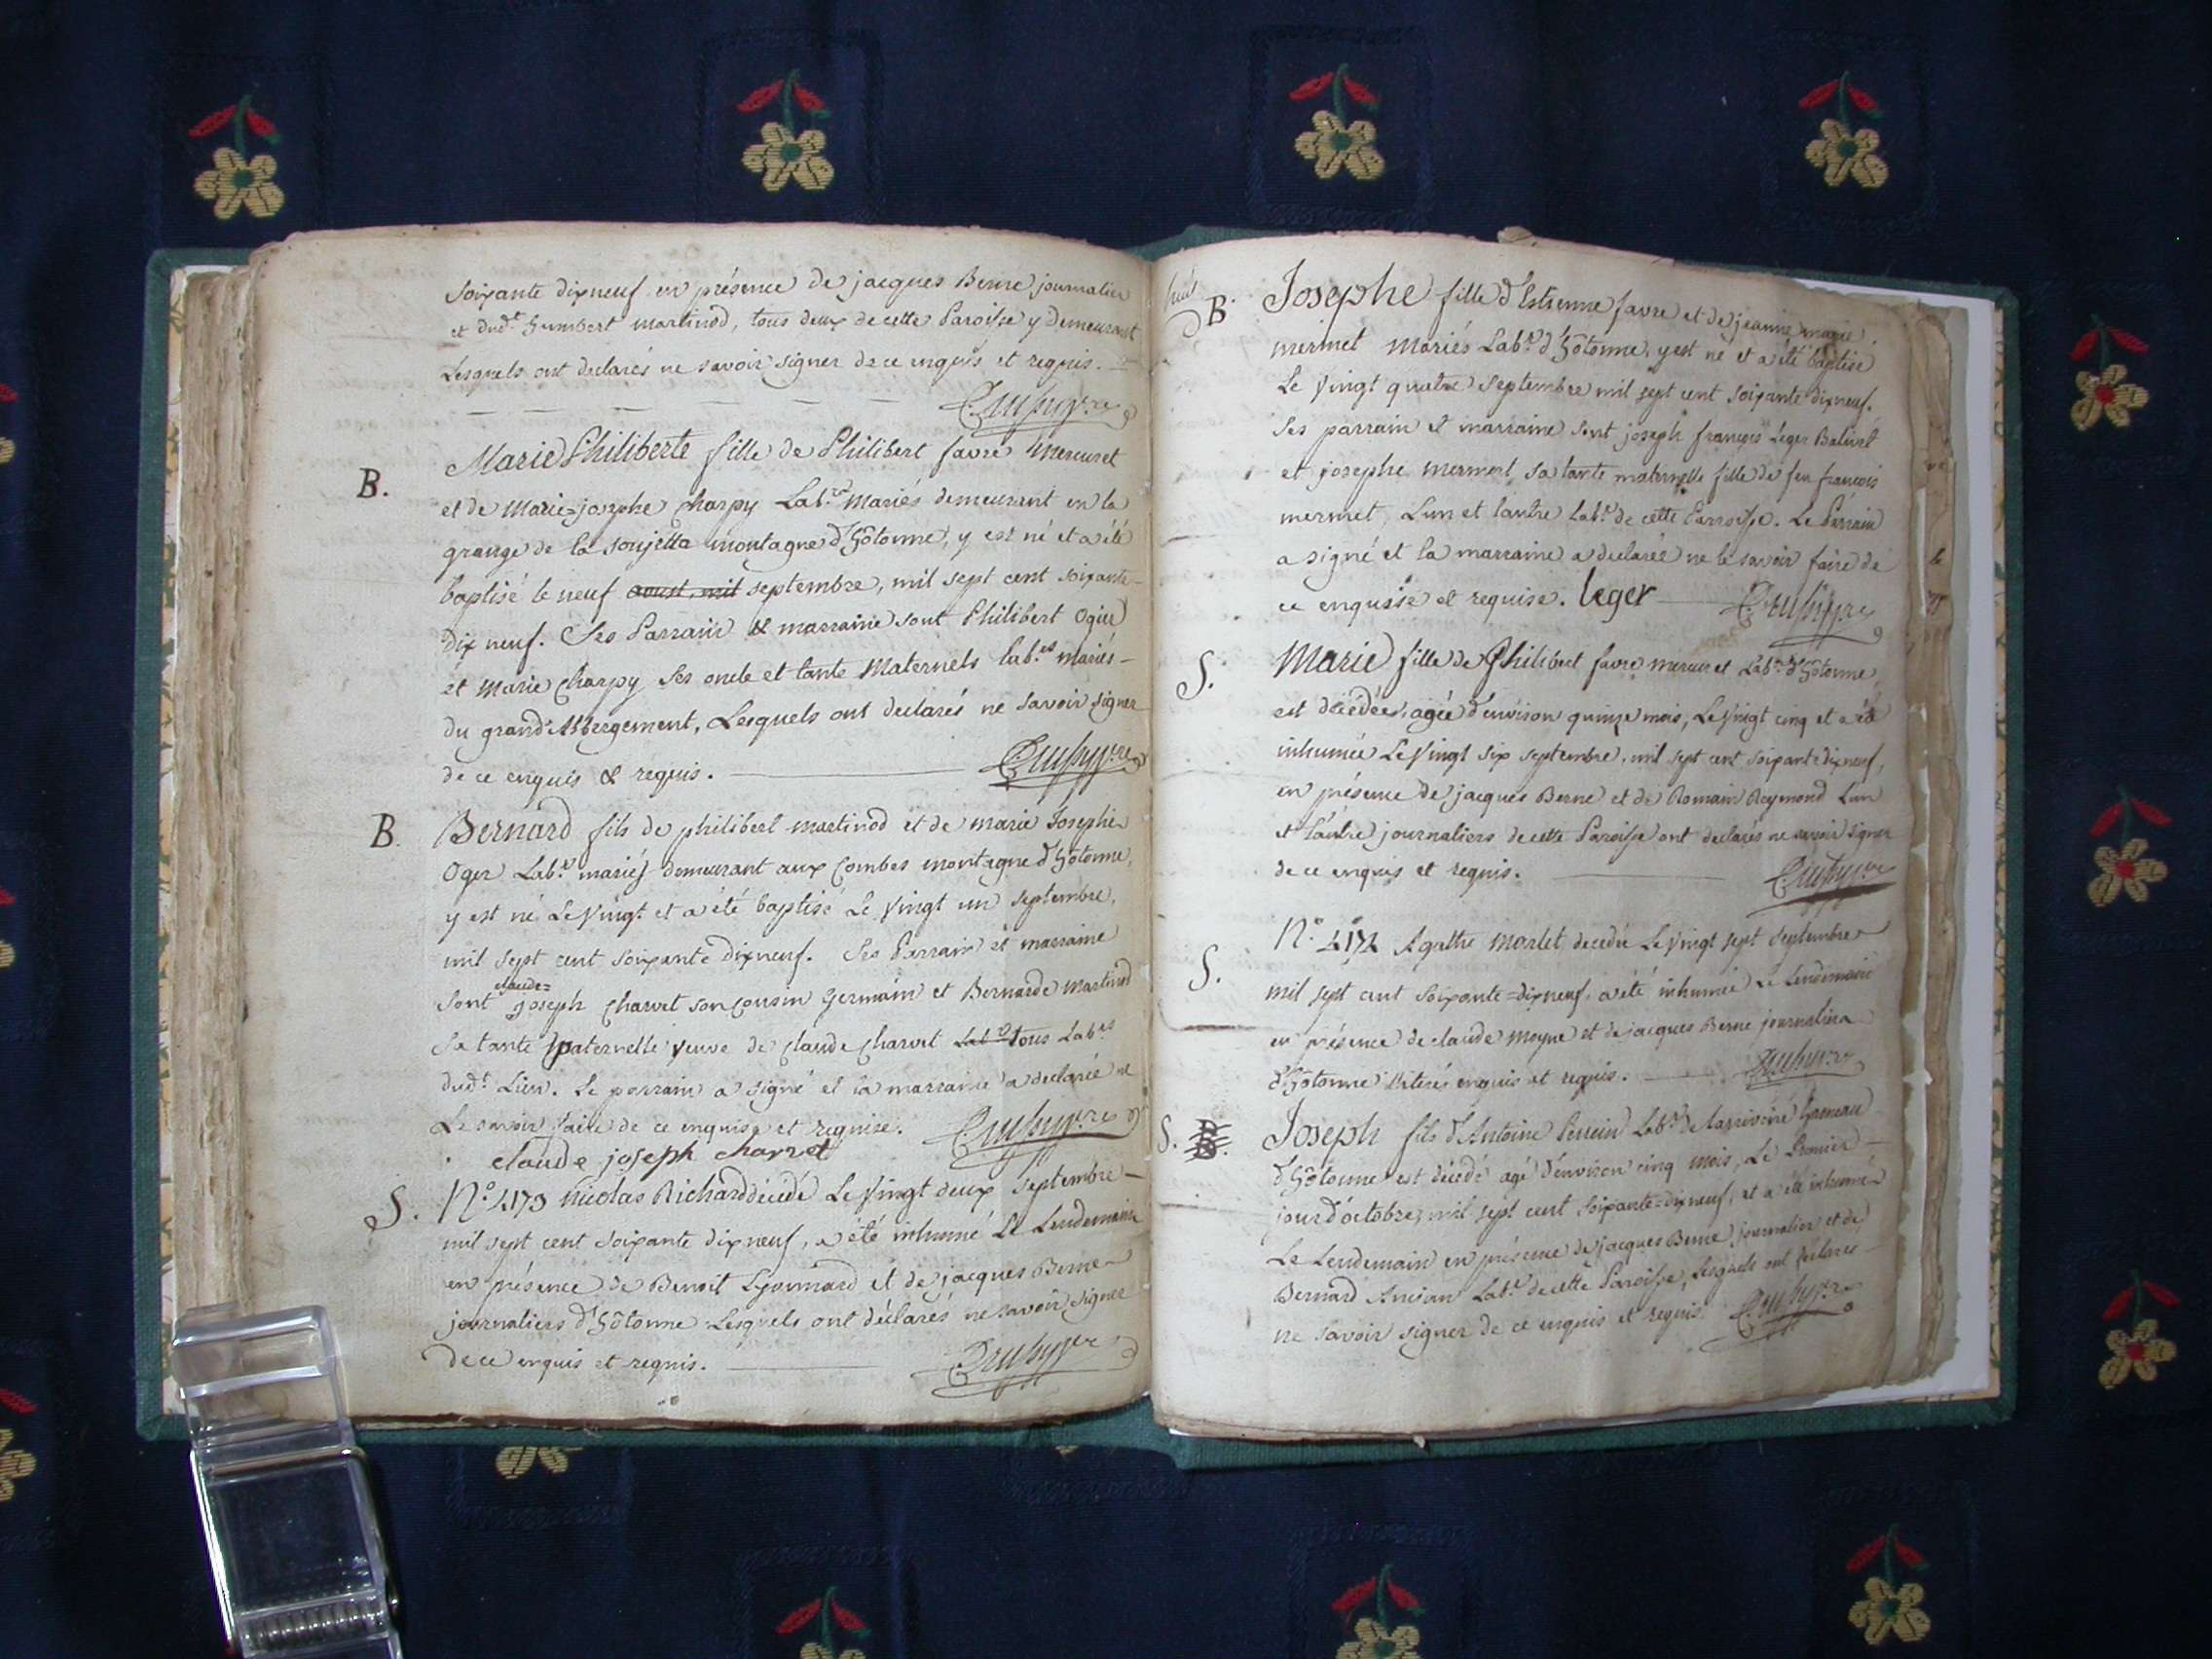 soixante dixneuf en présence de jacques Berne journalier
et dud.t humbert martinod, tous deux de cette Paroisse y demeurant
Lesquels ont declarés ne savoir signer de ce enquis et requis.
B. Marie Philiberte fille de Philibert favre mercuret
et de Marie-josephe Charpy Lab.rs Mariés demeurant en la
grange de la soujetta montagne d'hôtonne, y est né et a été
baptisé le neuf aoust mil septembre, mil sept cent soixante-
dix neuf. Ses Parrain & marraine sont Philibert Ogier
et Marie Charpy ses oncle et tante Maternels lab.rs mariés-
du grand Abergement, Lesquels ont declarés ne savoir signer
de ce enquis & requis.
B. Bernard fils de philibert martinod et de marie Josephe
Oger Lab.rs mariés demeurant aux Combes montagne d'hôtonne,
y est né Le Vingt et a été baptisé Le Vingt un septembre,
mil sept cent soixante dixneuf. Ses Parrain et marraine
claude=
sont joseph Charvet son Cousin Germain et Bernarde martinod
sa tante paternelle veuve de Claude Charvet Lab.rs tous Lab.rs
dud.t Lieu. Le parrain a signé et la marraine a declarée ne
Le savoir faire de ce enquise et requise.
claude joseph charvet
S. N.o 4173 Nicolas Richard décédé Le Vingt deux septembre-
mil sept cent soixante dixneuf, a été inhumé Le Lendemain
en présence de Benoit Lyonnard et de jacques Berne
journaliers d'hôtonne Lesquels ont déclarés ne savoir signer
de ce enquis et requis.
B. Josephe fille d'Estienne favre et de jeanne marie
mermet Mariés Lab.rs d'hôtonne, y est né et a été baptisé
Le Vingt quatre septembre mil sept cent soixante dixneuf.
Ses parrain et marraine sont joseph françois Leger
et josephe mermet, sa tante maternelle fille de feu françois
mermet, L'un et l'autre lab.rs de cette Parroisse. Le Parrain
a signé et la marraine a declarée ne le savoir faire de
ce enquise et requise. leger
S. Marie fille de Philibert favre mercuret Lab.r d'hôtonne
est décédée, agée d'environ quinze mois, Le Vingt cinq et a été
inhumée Le Vingt six septembre, mil sept cent soixante dixneuf,
en présence de jacques Berne et de Romain Reymond L'un
et l'autre journaliers de cette Paroisse ont declarés ne savoir signer
de ce enquis et requis.
S. N.o 4174 Agathe Marlet decedée Le Vingt sept septembre
mil sept cent soixante=dixneuf, a été inhumée Le Lendemain
en présence de claude moyne et de jacques Berne journaliers
d'hôtonne illiterés enquis et requis.
S. B. Joseph fils d'Antoine Perrein Lab.r hameau
d'hôtonne est décédé agé d'environ cinq mois, Le Premier-
jour d'octobre, mil sept cent soixante=dixneuf, et a été inhumé
Le Lendemain en présence de jacques Berne journalier et de
Bernard Ancian Lab.r de cette Paroisse, Lesquels ont déclarés-
ne savoir signer de ce enquis et requis.